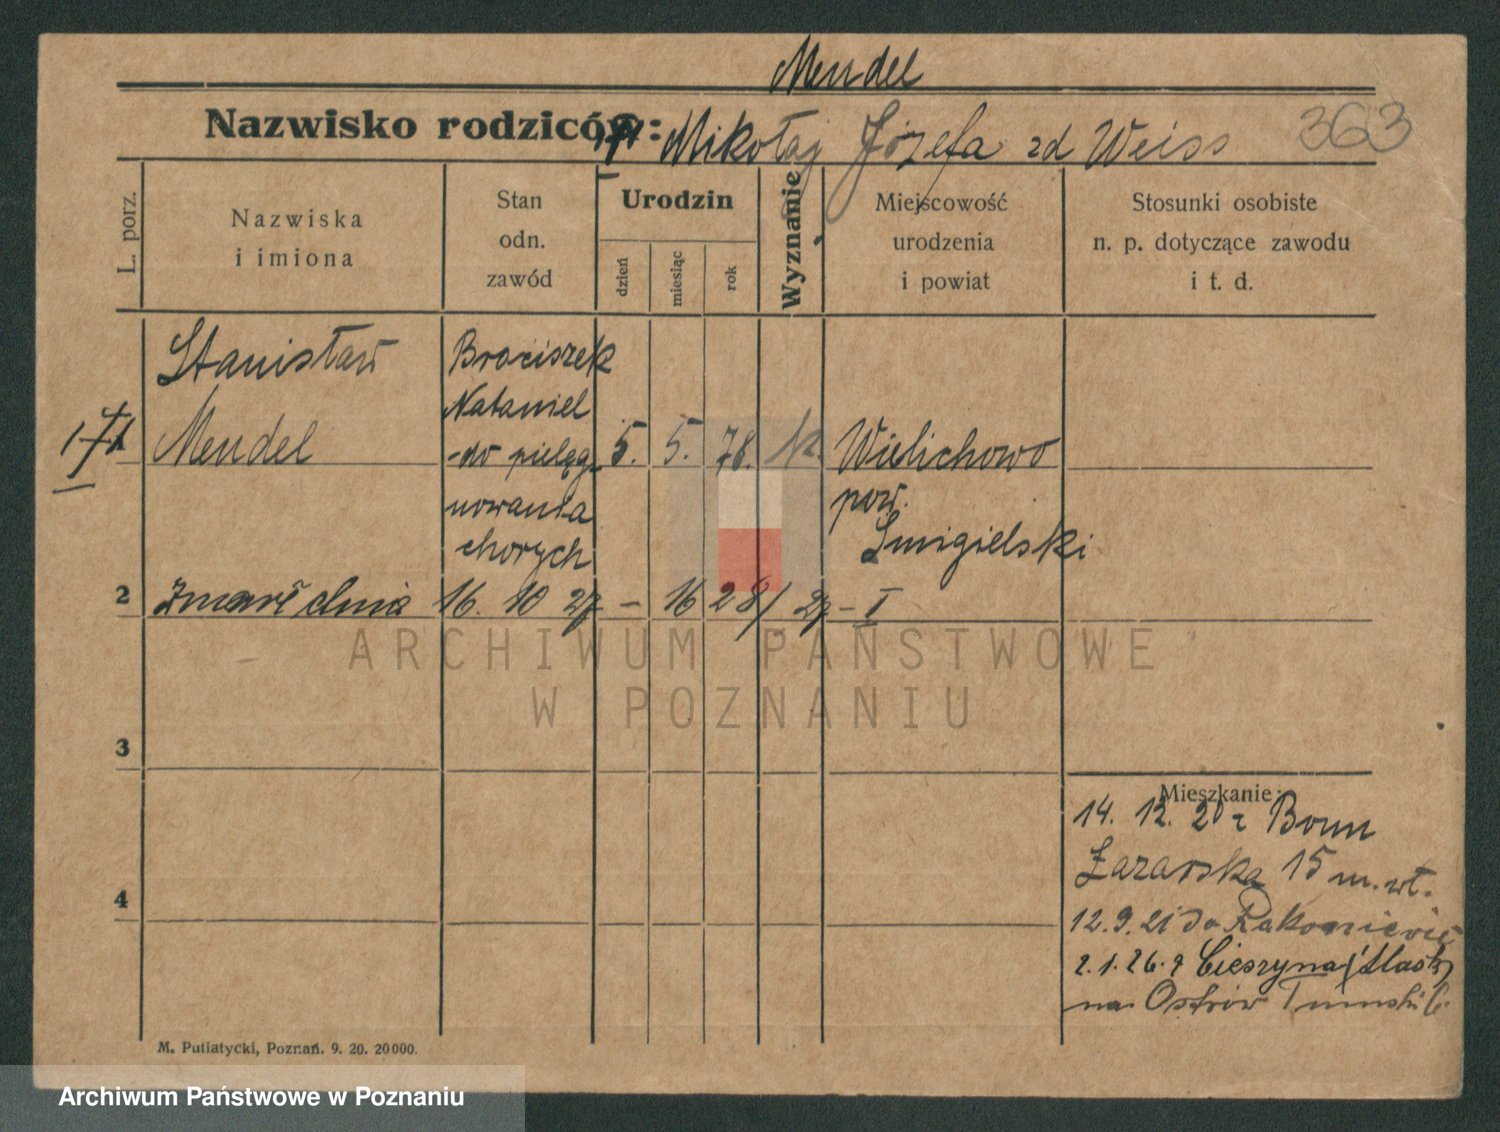 Mendel
Nazwisko rodziców: Mikołaj Józefa zd Weiss 363
L. porz.
Nazwiska
i imiona
Stan
odn.
zawód
Urodzin
dzień
miesiąc
rok
Wyznanie
Miejscowość
urodzenia
i powiat
Stosunki osobiste
n. p. dotyczące zawodu
i t. d.
Stanisław
Mendel
Braciszek
Nataniel
-do pielęg-
nowania
chorych
5. 5. 78. k.
Wielichowo
pow.
Śmigielski
2 zmarł dnia 16. 10 27 - 16 28/27 - I
3
4
Mieszkanie:
14. 12. 20 z Bonn
Łazarska 15 m. wł.
12.9.21 do Rakoniewic
2.1.26. z Cieszyna /Śląsk/
na Ostrów Tumski 6.
M. Putiatycki, Poznań. 9. 20. 20000.
ARCHIWUM PAŃSTWOWE
W POZNANIU
Archiwum Państwowe w Poznaniu